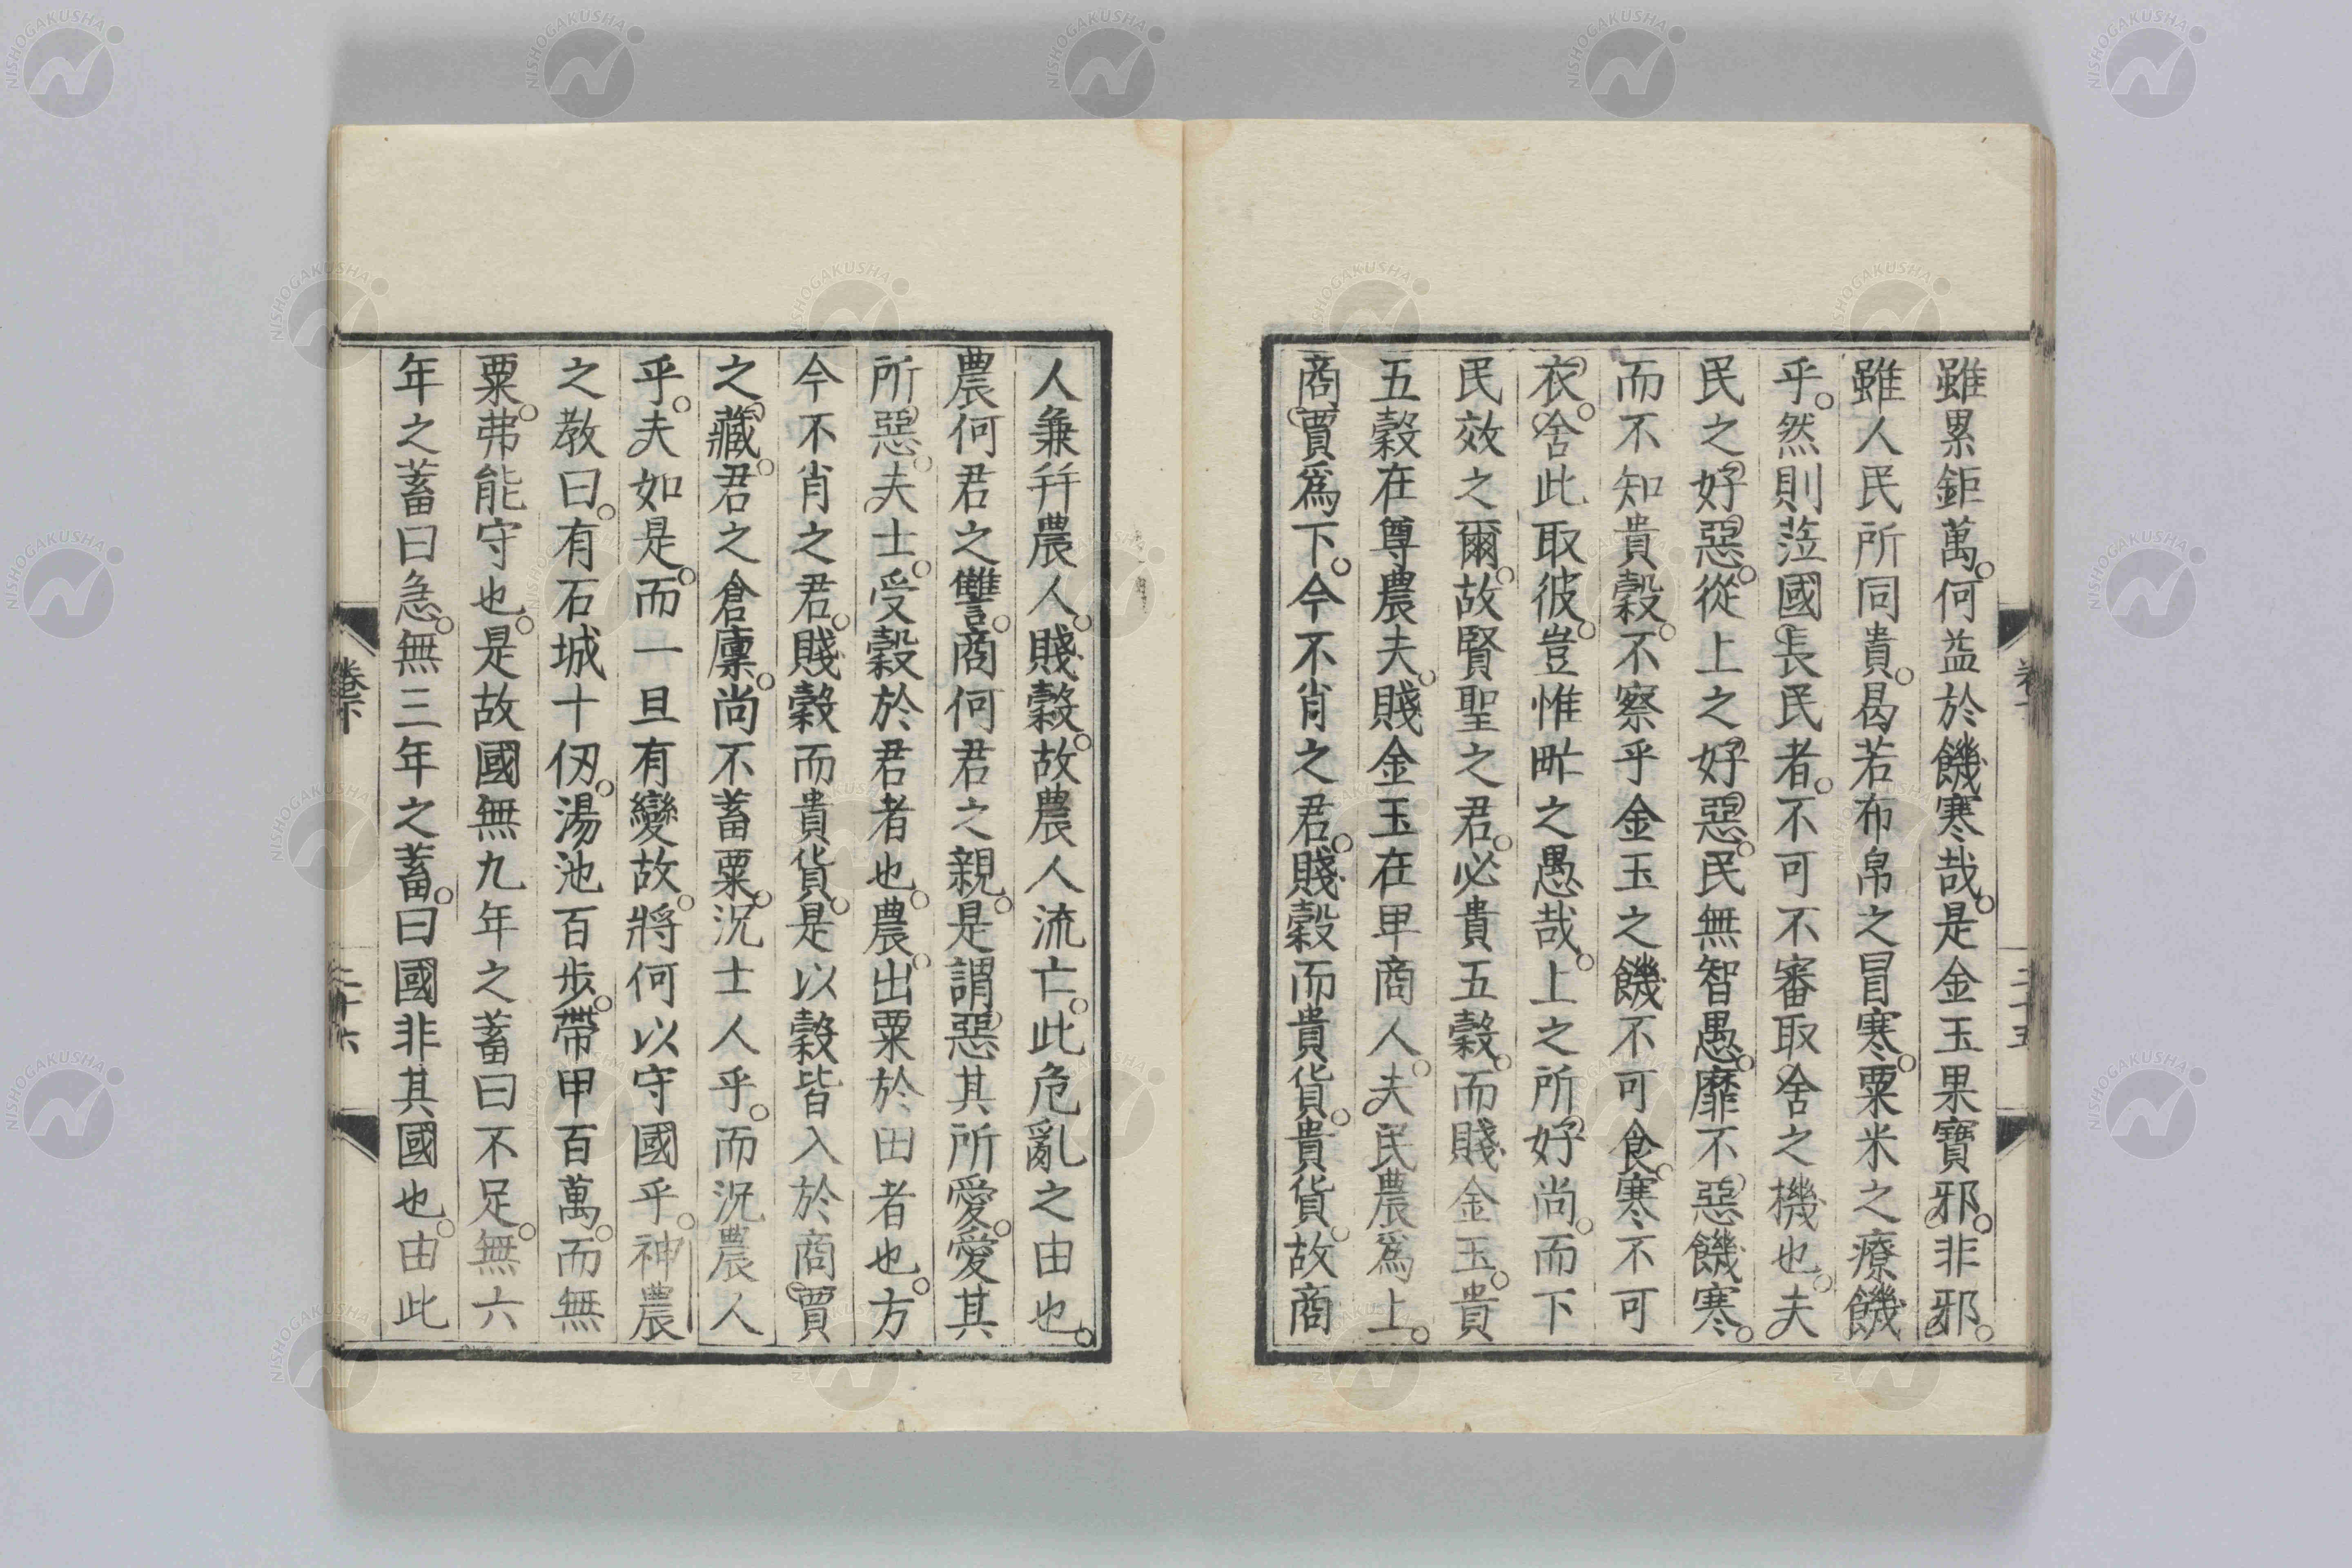 雖累鉅萬。何益於饑寒哉。是金玉果寶邪。非邪。
雖人民所同貴。曷若布帛之冒寒。粟米之療饑
乎。然則蒞國長民者。不可不審取舍之機也。夫
民之好惡。從上之好惡。民無智愚。靡不惡饑寒。
而不知貴穀。不察乎金玉之饑不可食。寒不可
衣。舍此取彼。豈惟甿之愚哉。上之所好尚。而下
民效之爾。故賢聖之君。必貴五穀。而賤金玉。貴
五穀在尊農夫。賤金玉在卑商人。夫民農爲上。
商賈爲下。今不肖之君。賤穀而貴貨。貴貨。故商
人兼幷農人。賤穀。故農人流亡。此危亂之由也。
農何君之讐。商何君之親。是謂惡其所愛。愛其
所惡。夫士。受穀於君者也。農。出粟於田者也。方
今不肖之君。賤穀而貴貨。是以穀皆入於商賈
之藏。君之倉廩。尚不蓄粟。況士人乎。而況農人
乎。夫如是。而一旦有變故。將何以守國乎。神農
之教曰。有石城十仞。湯池百步。帶甲百萬。而無
粟。弗能守也。是故國無九年之蓄曰不足。無六
年之蓄曰急。無三年之蓄。曰國非其國也。由此
卷下
二十六
NISHOGAKUSHA